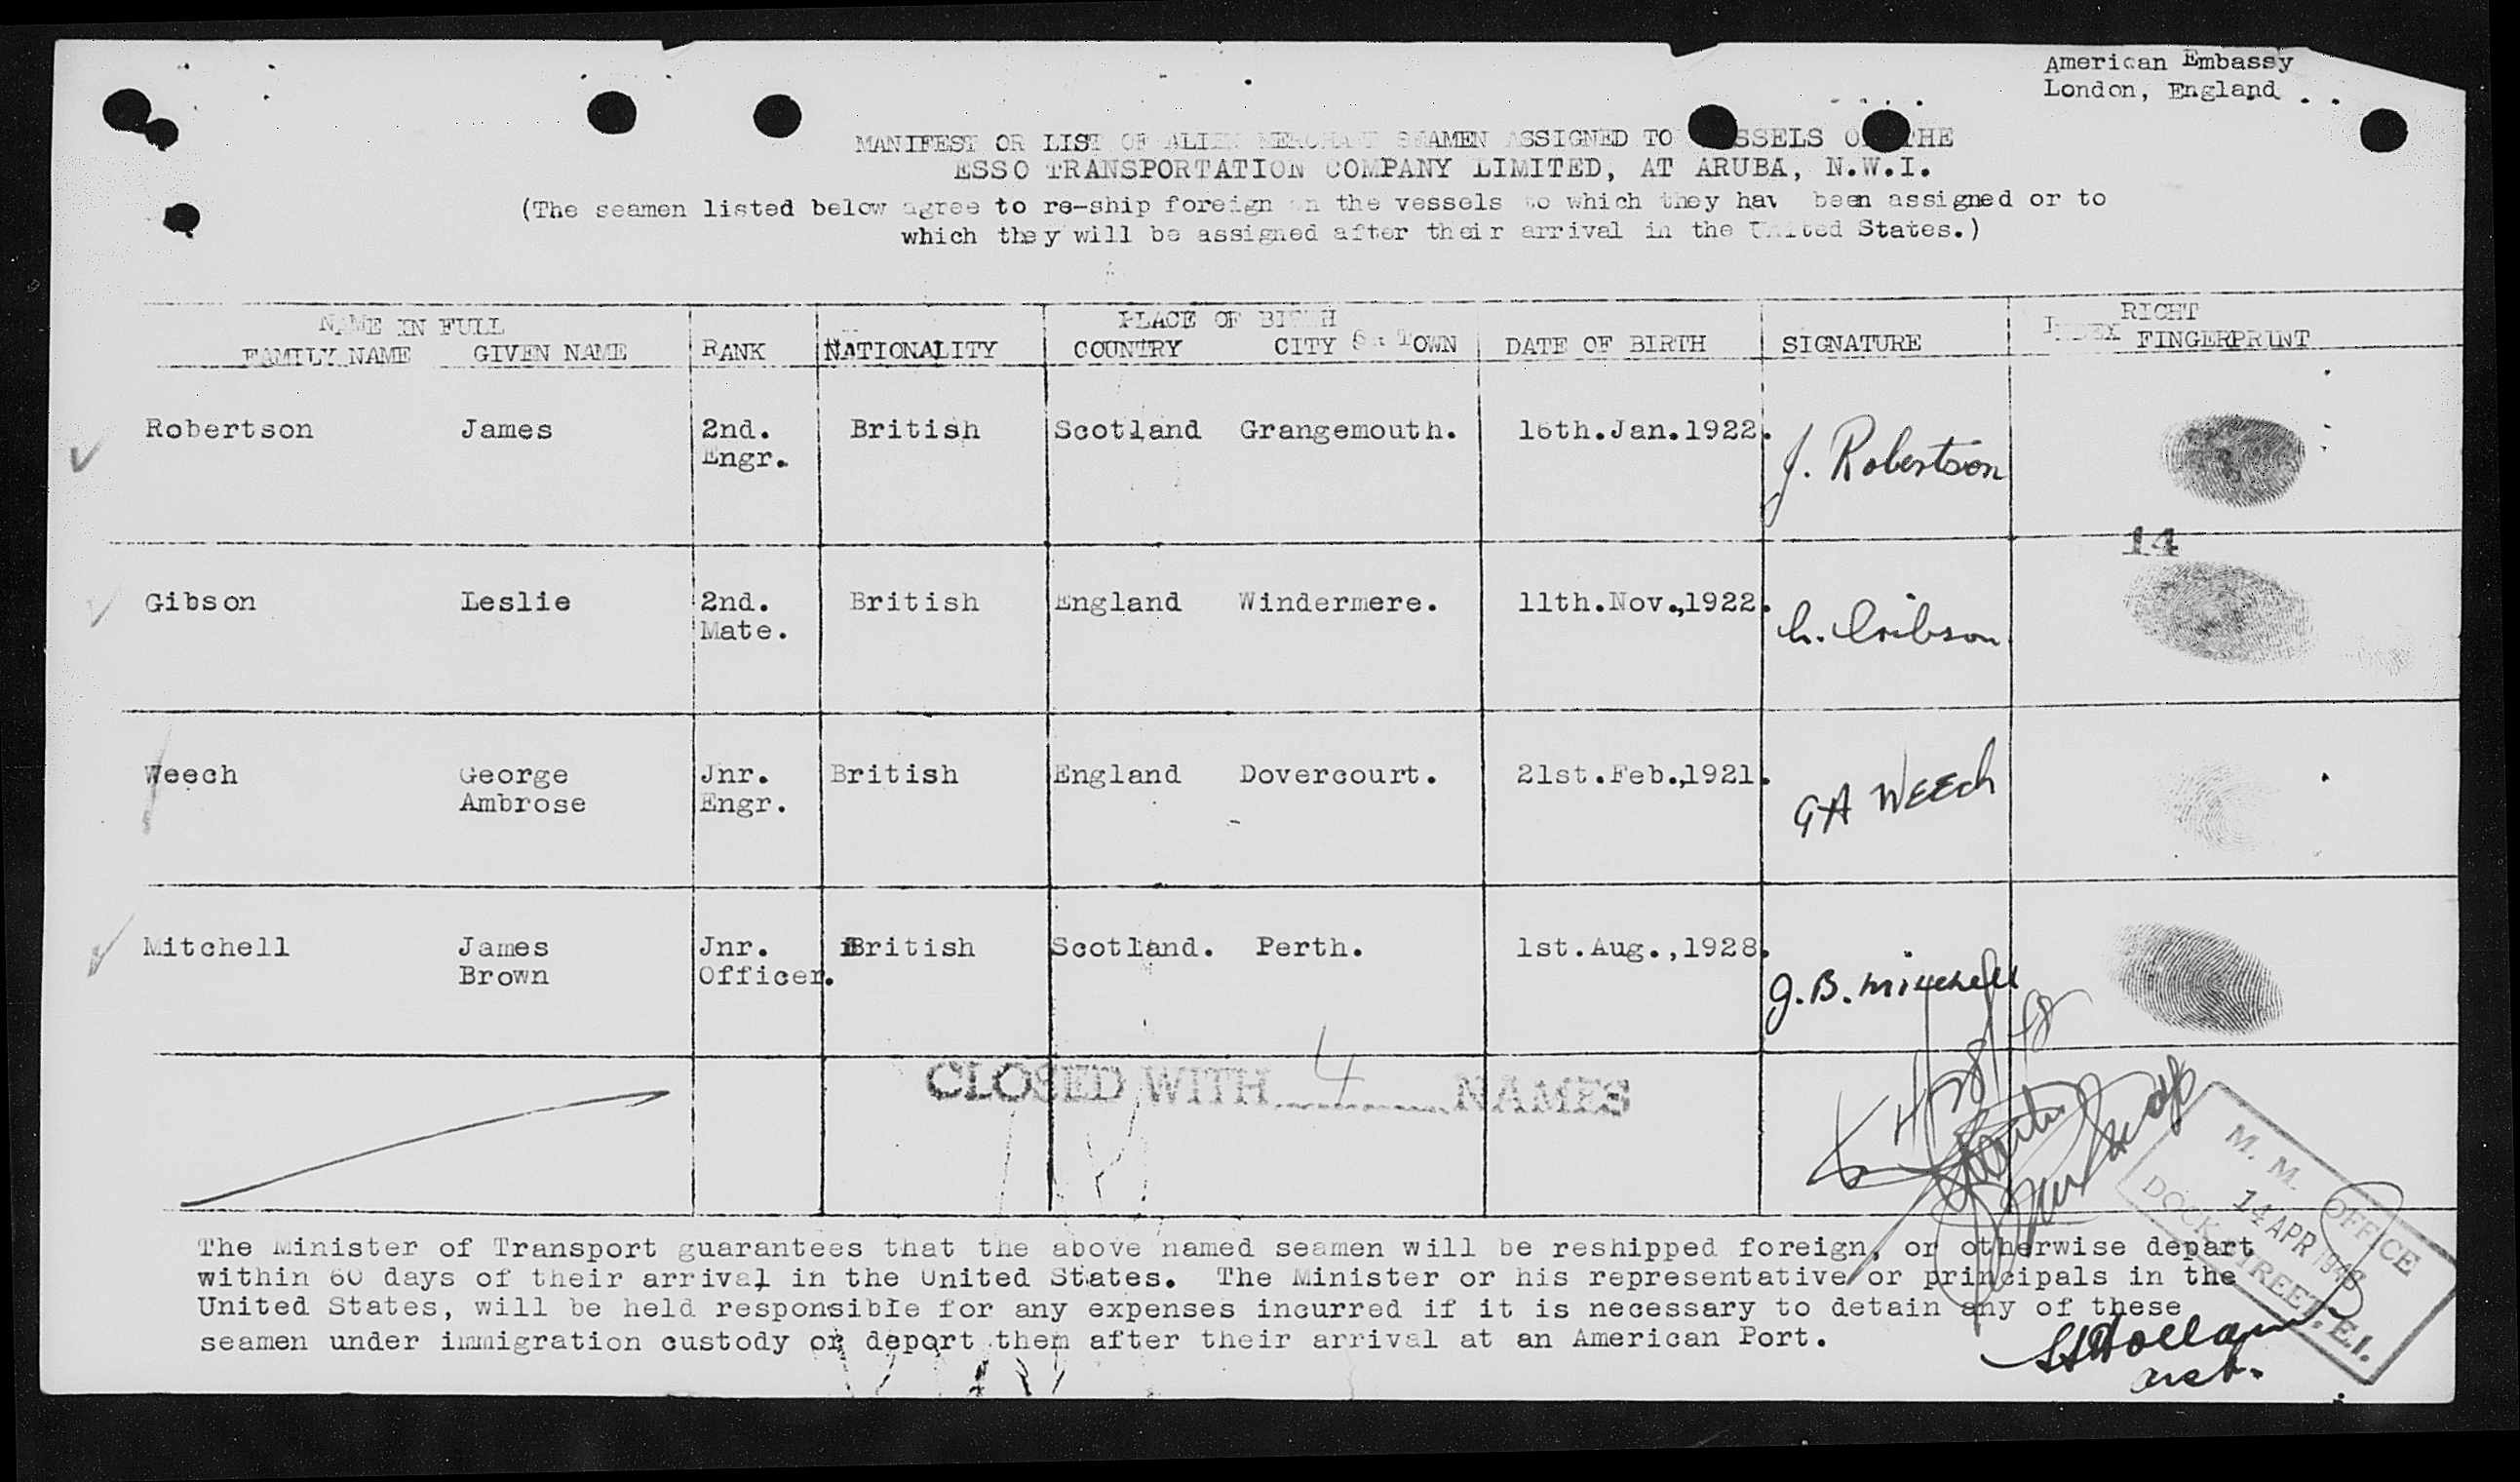 American Embassy
London, England
MANIFEST OR LIST OF ALIEN MERCHANT SEAMEN ASSIGNED TO SSELS O THE
ESSO TRANSPORTATION COMPANY LIMITED, AT ARUBA, N.W.I.
(The seamen listed below agree to re-ship foreign on the vessels to which they hav been assigned or to
which they will be assigned after their arrival in the United States.)
NAME IN FULL PLACE OF BIRTH RIGHT
FAMILY NAME GIVEN NAME RANK NATIONALITY COUNTRY CITY OR TOWN DATE OF BIRTH SIGNATURE INDEX FINGERPRINT
Robertson James 2nd. British Scotland Grangemouth. 16th.Jan.1922.
Engr. J. Robertson
14
Gibson Leslie 2nd. British England Windermere. 11th.Nov.,1922.
Mate. L. Gibson
Weech George Jnr. British England Dovercourt. 21st.Feb.,1921.
Ambrose Engr. GA WEECh
Mitchell James Jnr. British Scotland. Perth. 1st.Aug.,1928.
Brown Officer. J.B. Mitchell
CLOSED WITH 4 NAMES
M. M. OFFICE
14 APR 1948
DOCK STREET. E.1.
The Minister of Transport guarantees that the above named seamen will be reshipped foreign, or otherwise depart
within 60 days of their arrival in the United States. The Minister or his representative or principals in the
United States, will be held responsible for any expenses incurred if it is necessary to detain any of these
seamen under immigration custody or deport them after their arrival at an American Port.